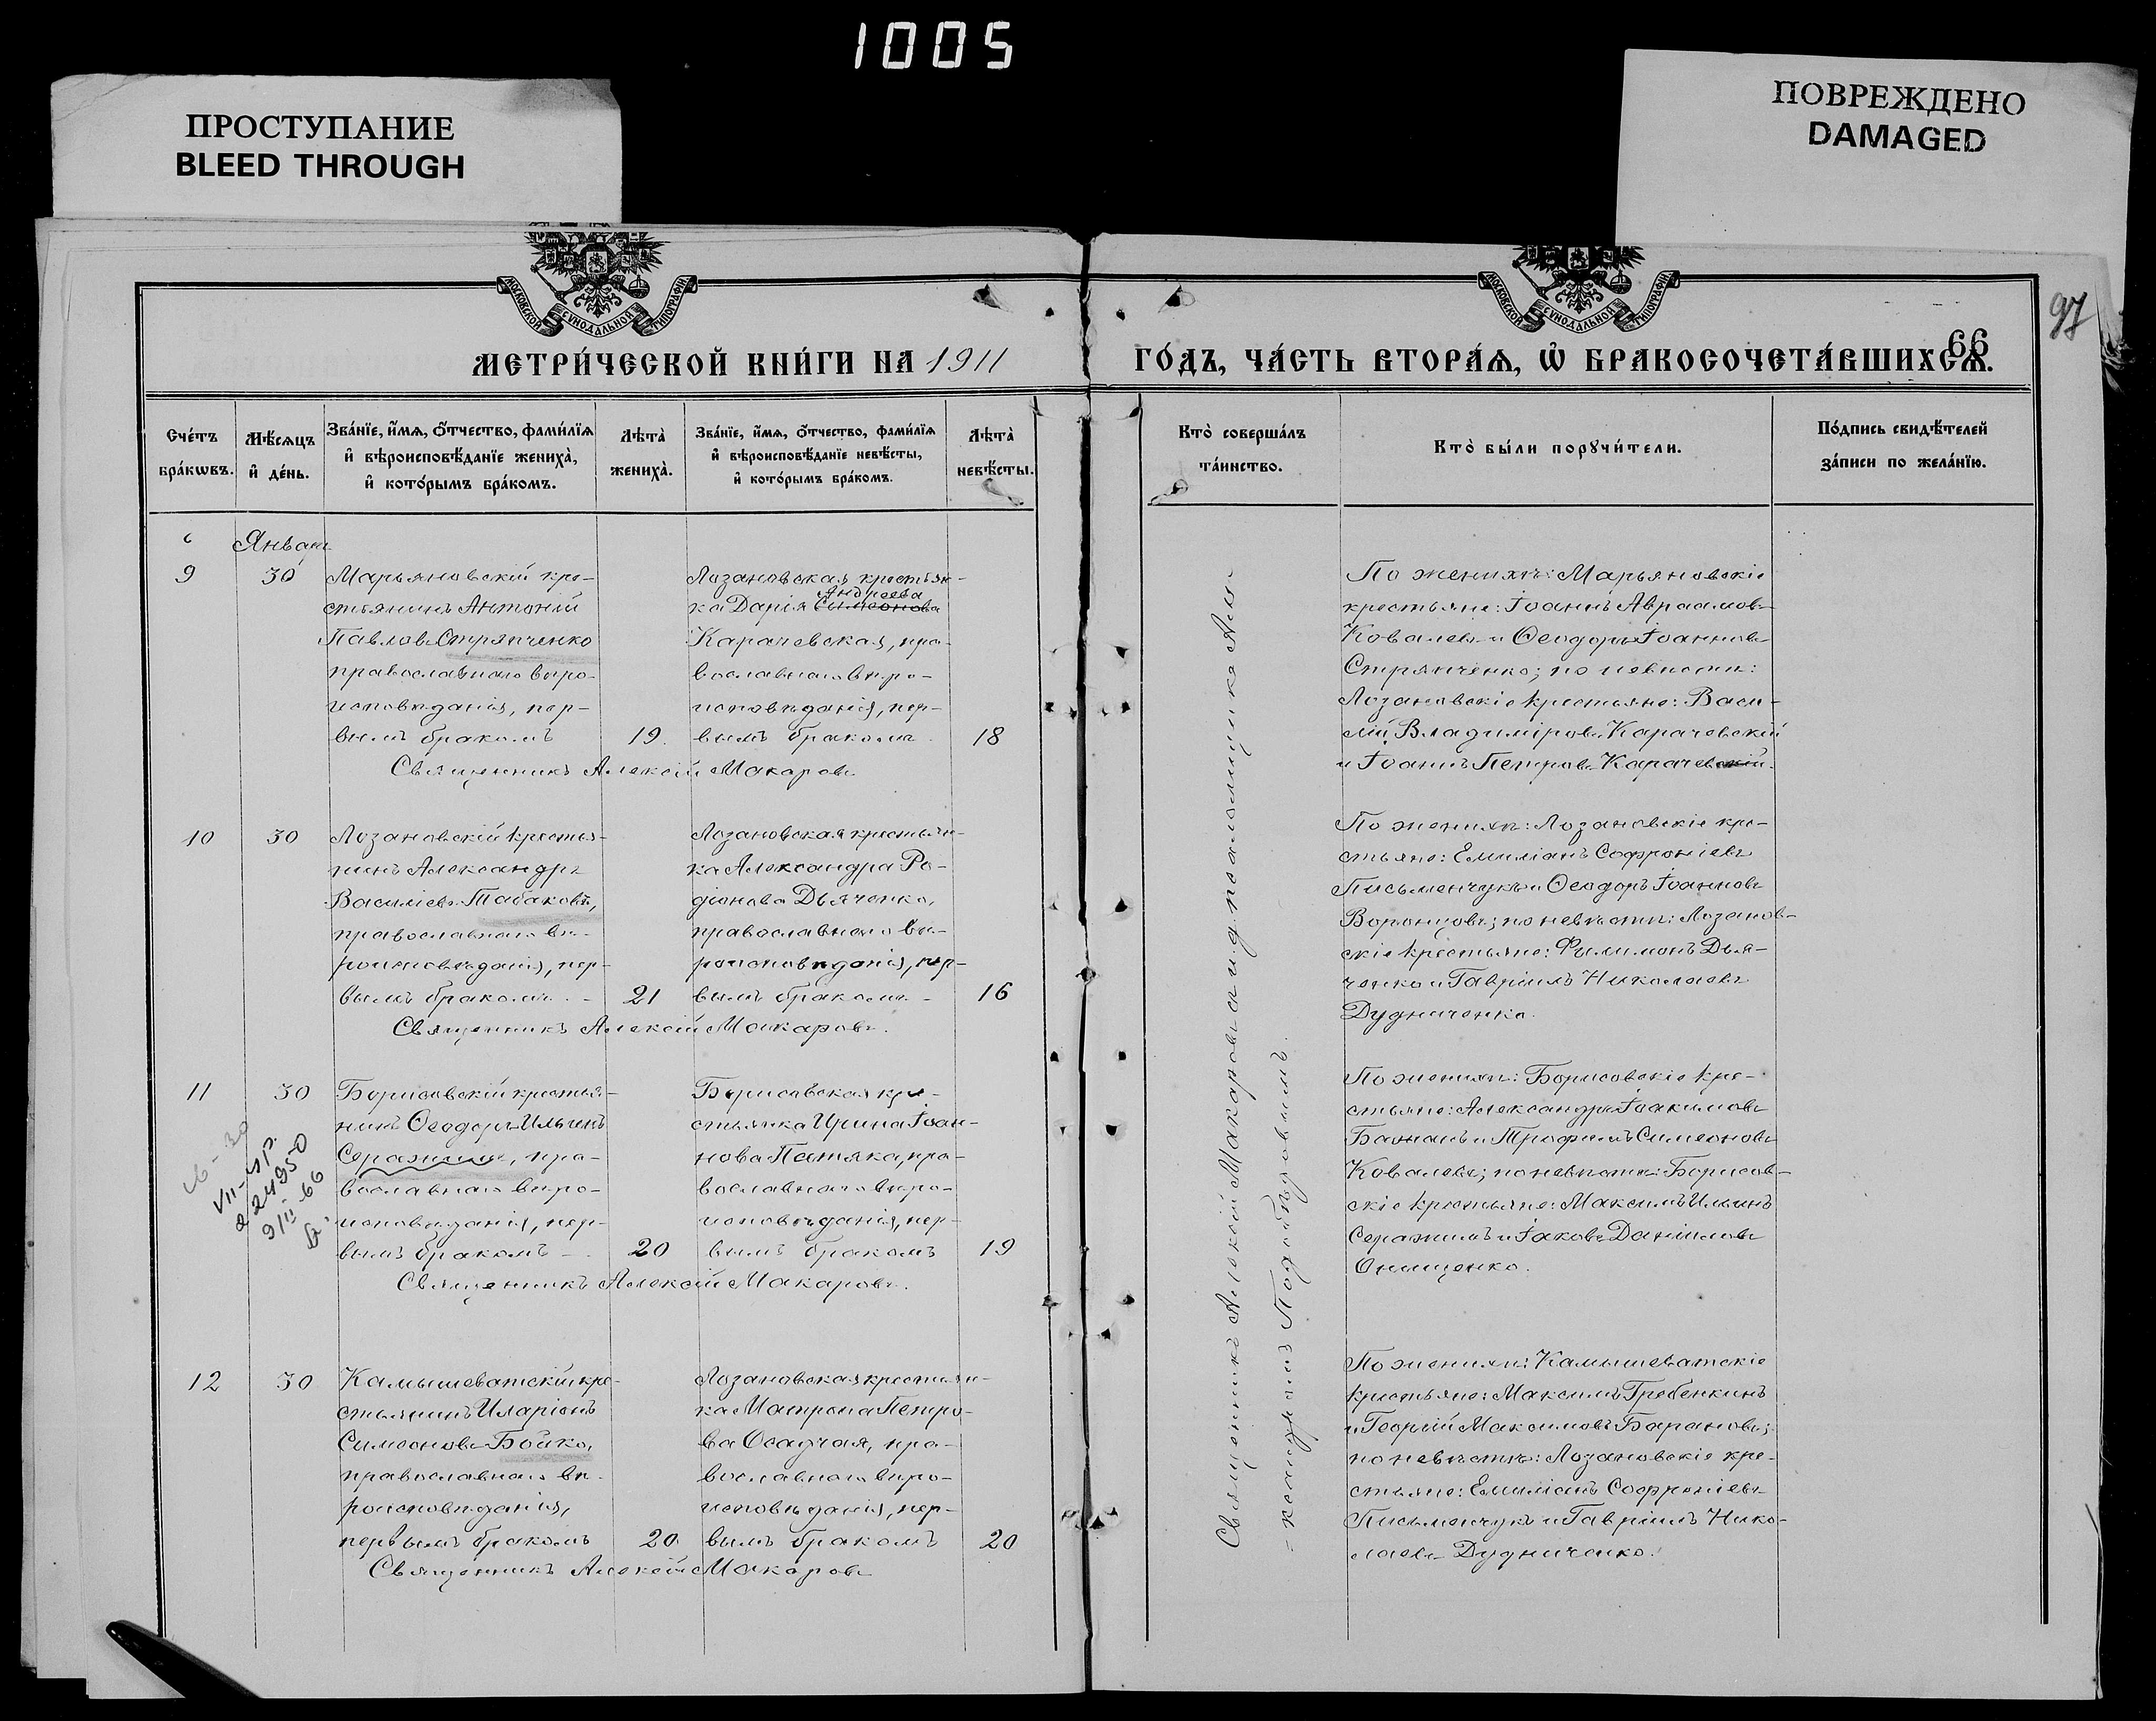 1005
ПРОСТУПАНИЕ
BLEED THROUGH
ПОВРЕЖДЕНО
DAMAGED
МОСКОВСКОЙ СѴНОДАЛЬНОЙ ТИПОГРАФІИ.
МОСКОВСКОЙ СѴНОДАЛЬНОЙ ТИПОГРАФІИ.
97
66
МЕТРИ́ЧЕСКОЙ КНИ́ГИ НА 1911 ГО́ДЪ, ЧА́СТЬ ВТОРА́Ѧ, Ѽ БРАКОСОЧЕТА́ВШИХСѦ.
Сче́тъ бра́кѡвъ.
Мѣ́сѧцъ и҆ де́нь.
Зва́нїе, и҆́мѧ, ѻ҆́тчество, фами́лїѧ
и҆ вѣроисповѣ́данїе жениха̀,
и҆ кото́рымъ бра́комъ.
Лѣта̀ жениха̀.
Зва́нїе, и҆́мѧ, ѻ҆́тчество, фами́лїѧ
и҆ вѣроисповѣ́данїе невѣ́сты,
и҆ кото́рымъ бра́комъ.
Лѣта̀ невѣ́сты.
Кто̀ соверша́лъ та́инство.
Кто̀ бы́ли порꙋчи́тели.
По́дпись свидѣ́телей
за́писи по жела́нїю.
Январь
9
30
Марьяновскій кре-
стьянинъ Антоній
Павловъ Стряпченко
православнаго вѣро-
исповѣданія, пер-
вымъ бракомъ
19.
Лозановская крестьян-
Андреева
ка Дарія Симеонова
Карачевская, пра-
вославнаго вѣро-
исповѣданія, пер-
вымъ бракомъ
18
Священникъ Алексій Макаровъ
По женихѣ: Марьяновскіе
крестьяне: Іоаннъ Авраамовъ
Ковалевъ и Ѳеодоръ Іоанновъ
Стряпченко; по невѣстѣ:
Лозановскіе крестьяне: Васи-
лій Владиміровъ Карачевскій
и Іоаннъ Петровъ Карачевскій.
10
30
Лозановскій крестья-
нинъ Александръ
Василіевъ Табаковъ,
православнаго вѣ-
роисповѣданія, пер-
вымъ бракомъ. -
21
Лозановская крестьян-
ка Александра Ро-
діонова Дьяченко,
православнаго вѣ-
роисповѣданія, пер-
вымъ бракомъ -
16
Священникъ Алексій Макаровъ.
По женихѣ: Лозановскіе кре-
стьяне: Емиліанъ Софроніевъ
Письменчукъ и Ѳеодоръ Іоанновъ
Воронцовъ; по невѣстѣ: Лозанов-
скіе крестьяне: Филимонъ Дья-
ченко и Гавріилъ Николаевъ
Дудниченко.
11
30
VII-
224950
9/II-66
Борисовскій крестья-
нинъ Ѳеодоръ Ильинъ
Серажимъ, пра-
вославнаго вѣро-
исповѣданія, пер-
вымъ бракомъ -
20
Борисовская кре-
стьянка Ирина Іоан-
нова Патяка, пра-
вославнаго вѣро-
исповѣданія, пер-
вымъ бракомъ
19
Священникъ Алексій Макаровъ.
По женихѣ: Борисовскіе кре-
стьяне: Александръ Іоакимовъ
Бажанъ и Трофимъ Симеоновъ
Ковалевъ; по невѣстѣ: Борисов-
скіе крестьяне: Максимъ Ильинъ
Серажимъ и Іаковъ Даніиловъ
Онищенко.
12
30
Камышеватскій кре-
стьянинъ Иларіонъ
Симеоновъ Бойко,
православнаго вѣ-
роисповѣданія,
первымъ бракомъ
20.
Лозановская крестьян-
ка Матрона Петро-
ва Осадчая, пра-
вославнаго вѣро-
исповѣданія, пер-
вымъ бракомъ
20
Священникъ Алексій Макаровъ
По женихѣ: Камышеватскіе
крестьяне: Максимъ Гребенкинъ
и Георгій Максимовъ Барановъ;
по невѣстѣ: Лозановскіе кре-
стьяне: Емиліанъ Софроніевъ
Письменчукъ и Гавріилъ Нико-
лаевъ Дудниченко.
Священникъ Алексій Макаровъ и и. д. псаломщика Але-
ксандромъ